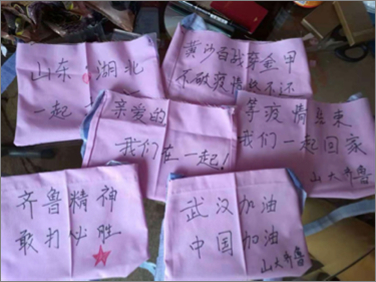 山东 湖北
一起
黄沙百战穿金甲
不破疫情终不还
亲爱的
我们在一起!
等疫情结束
我们一起回家
山大齐鲁
齐鲁精神
敢打必胜
武汉加油
中国加油
山大齐鲁